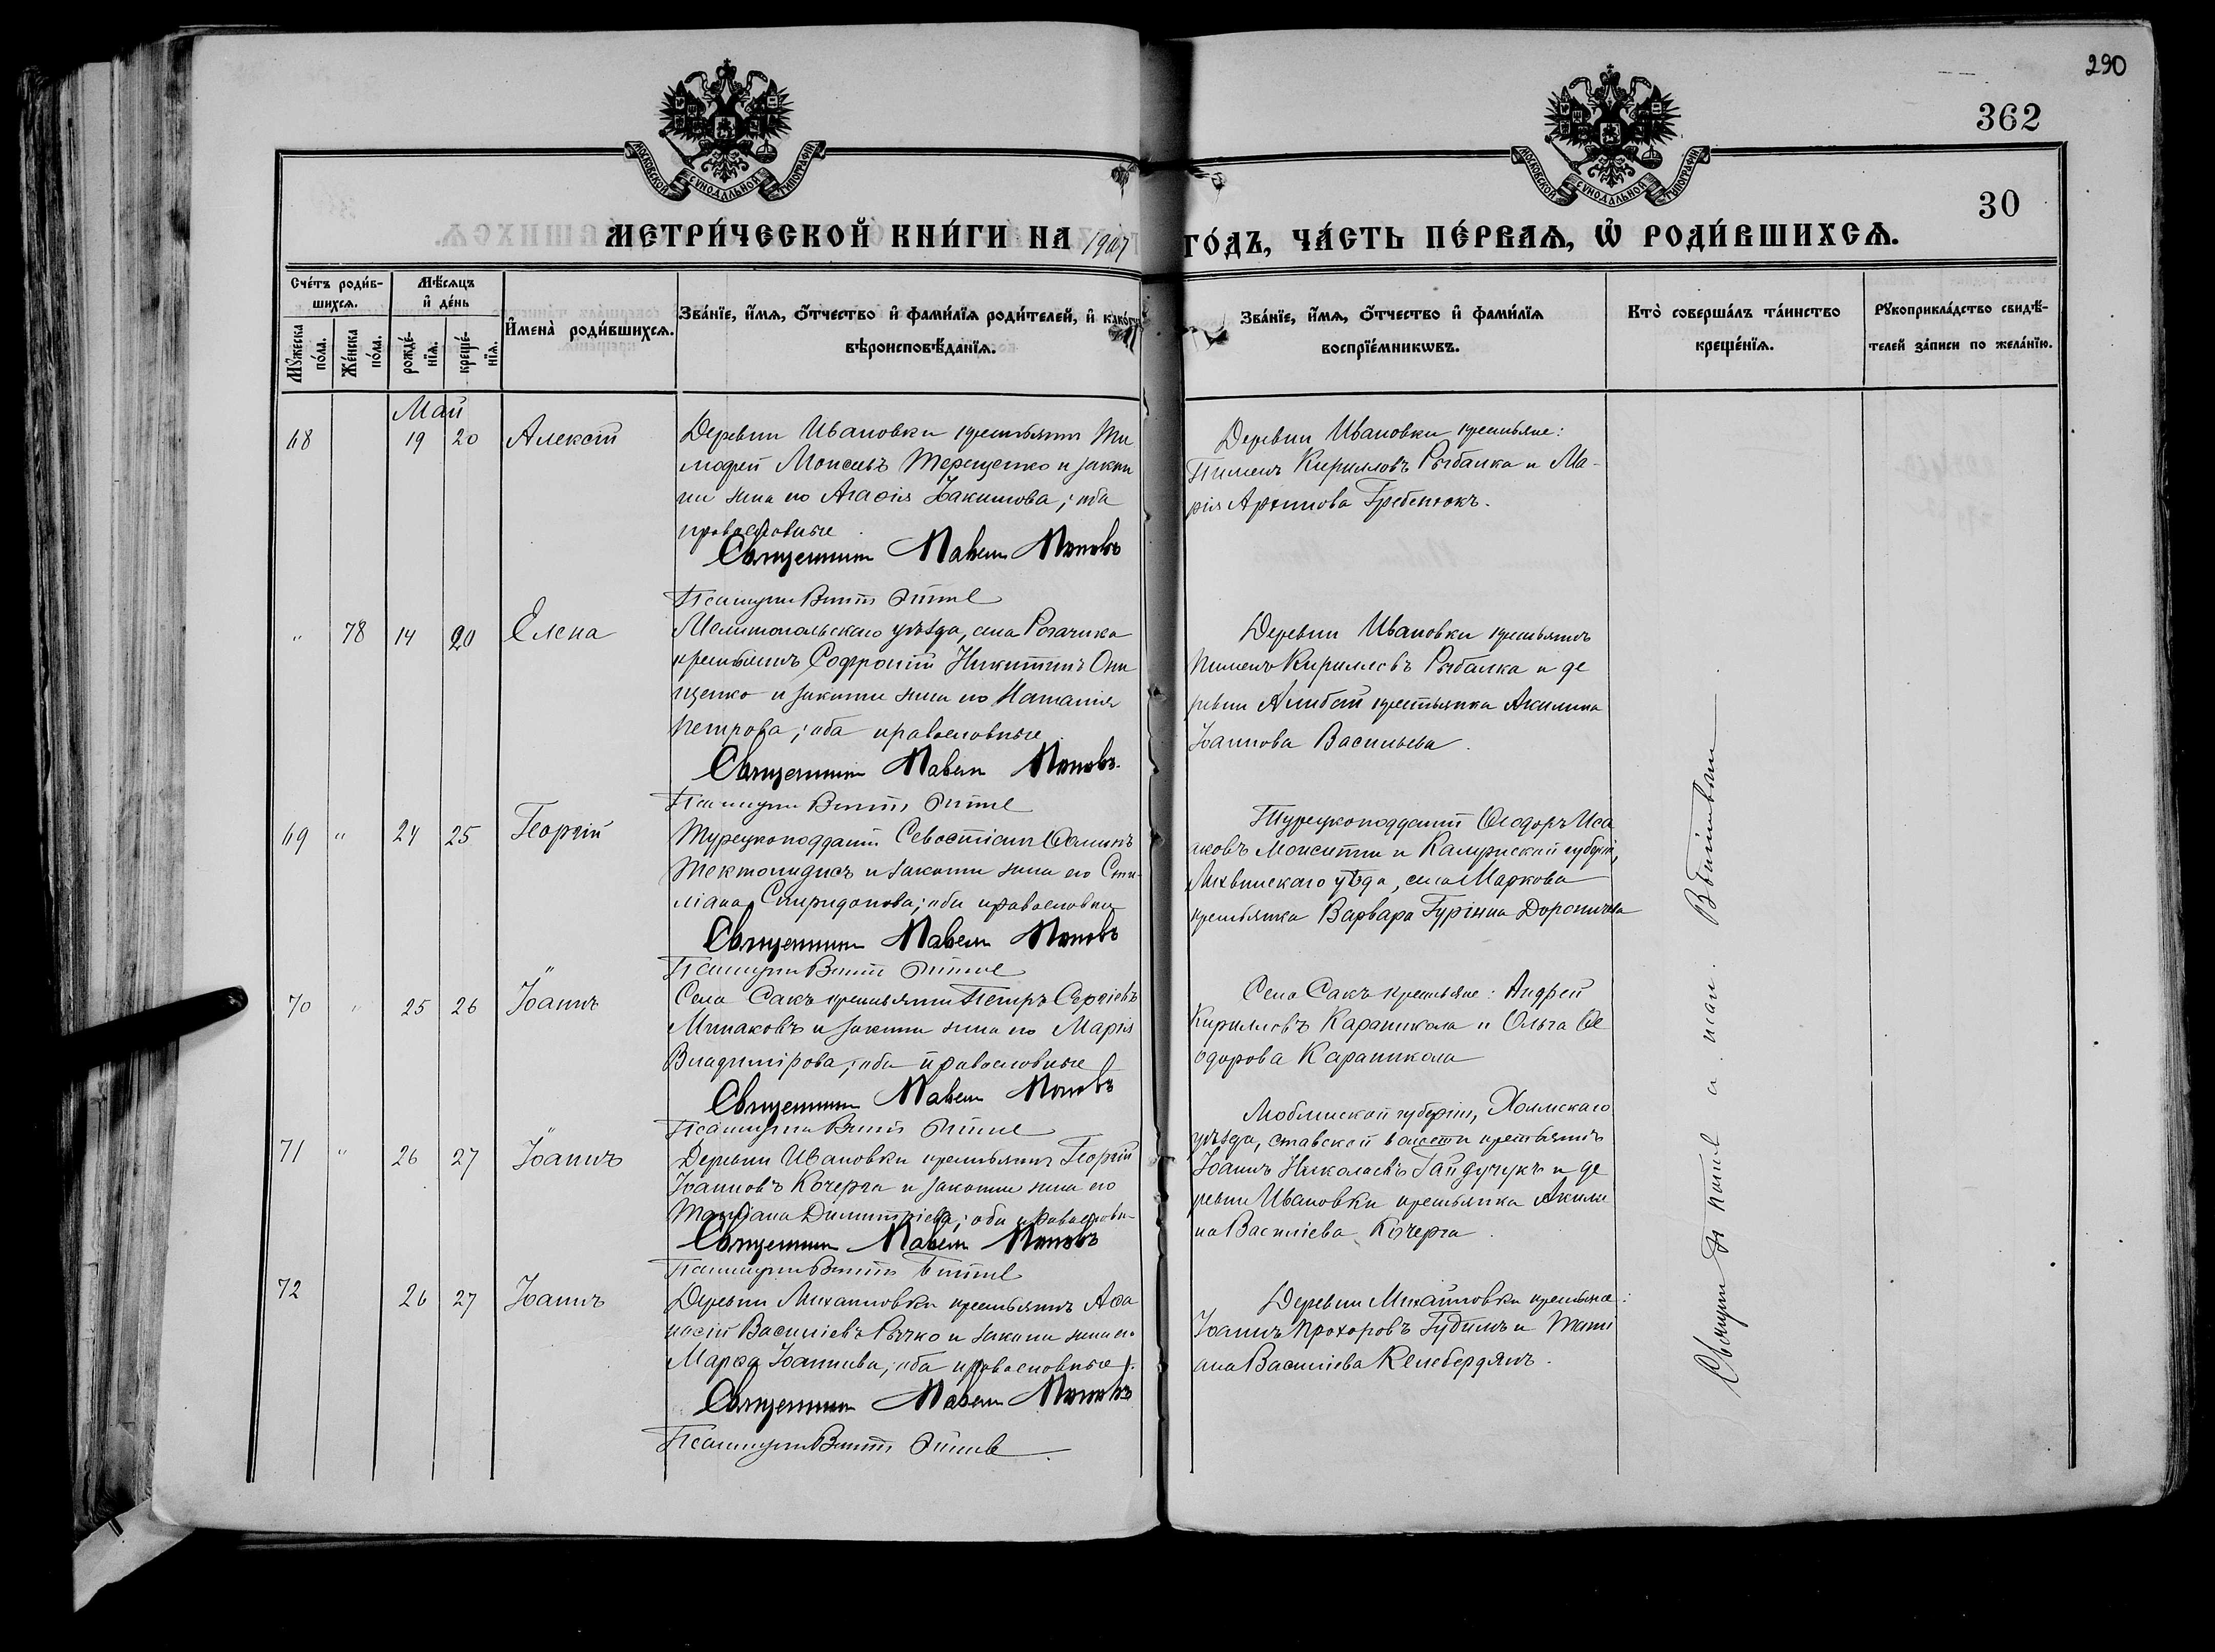 290
362
30
МОСКОВСКОЙ СУНОДАЛЬНОЙ ТИПОГРАФІИ
МОСКОВСКОЙ СУНОДАЛЬНОЙ ТИПОГРАФІИ
МЕТРИ́ЧЕСКОЙ КНИ́ГИ НА 1907 ГО́ДЪ, ЧА́СТЬ ПЕ́РВАѦ, Ѡ҆ РОДИ́ВШИХСѦ.
Сче́тъ роди́в-
шихсѧ.
Мꙋ́жеска по́ла.
Же́нска по́ла.
Мѣ́сѧцъ
и҆ де́нь
рожде́-
нїѧ.
креще́-
нїѧ.
И҆мена̀ роди́вшихсѧ.
Зва́нїе, и҆́мѧ, ѻ҆́тчество и҆ фами́лїѧ роди́телей, и҆ како́гѡ
вѣроисповѣ́данїѧ.
Зва́нїе, и҆́мѧ, ѻ҆́тчество и҆ фами́лїѧ
воспрїе́мникѡвъ.
Кто̀ соверша́лъ та́инство
креще́нїѧ.
Рꙋкоприкла́дство свидѣ́-
телей за́писи по жела́нїю.
Май
68 19 20 Алексѣй
Деревни Ивановки крестьянинъ Ти
моѳей Моисеевъ Терещенко и закон
ная жена его Агаѳія Іоакимова; оба
православные
Священникъ Павелъ Поповъ
Псаломщикъ
Деревни Ивановки крестьяне:
Пименъ Кирилловъ Рыбалка и Ма-
рія Архипова Гребенюкъ.
" 78 14 20 Елена
Мелитопольскаго уѣзда, села Рогачика
крестьянинъ Софроній Никитинъ Они
щенко и законная жена его Наталія
Петрова; оба православные
Священникъ Павелъ Поповъ.
Псаломщикъ
Деревни Ивановки крестьянинъ
Пименъ Кирилловъ Рыбалка и де
ревни крестьянка Акилина
Іоаннова Васильева.
69 " 24 25 Георгій
Турецкоподданный Севостіанъ
и законная жена его Сти-
ліана Спиридонова; оба православные
Священникъ Павелъ Поповъ
Псаломщикъ
Турецкоподданный Ѳеодоръ Иса
аковъ и Калужской губерніи,
Лихвинскаго уѣзда, села Маркова
крестьянка Варвара Дороничева
70 " 25 26 Іоаннъ
Села Сакъ крестьянинъ Петръ Сергіевъ
Минаковъ и законная жена его Марія
Владимірова; оба православные
Священникъ Павелъ Поповъ
Псаломщикъ
Села Сакъ крестьяне: Андрей
Кирилловъ Караникола и Ольга Ѳе
одорова Караникола
71 " 26 27 Іоаннъ
Деревни Ивановки крестьянинъ Георгій
Іоанновъ Кочерга и законная жена его
Татіана Димитріева; оба православны
Священникъ Павелъ Поповъ
Псаломщикъ
Люблинской губерніи, Холмскаго
уѣзда, ставской волости крестьянинъ
Іоаннъ Николаевъ Гайдучукъ и де
ревни Ивановки крестьянка Акили
на Василіева Кочерга.
72 26 27 Іоаннъ
Деревни Михайловки крестьянинъ Аѳа
насій Василіевъ Рычко и законная жена его
Марѳа Іоаннова; оба православные.
Священникъ Павелъ Поповъ
Псаломщикъ
Деревни Михайловки крестьяне:
Іоаннъ Прохоровъ Гудимъ и Тати
ана Василіева Келебердянъ.